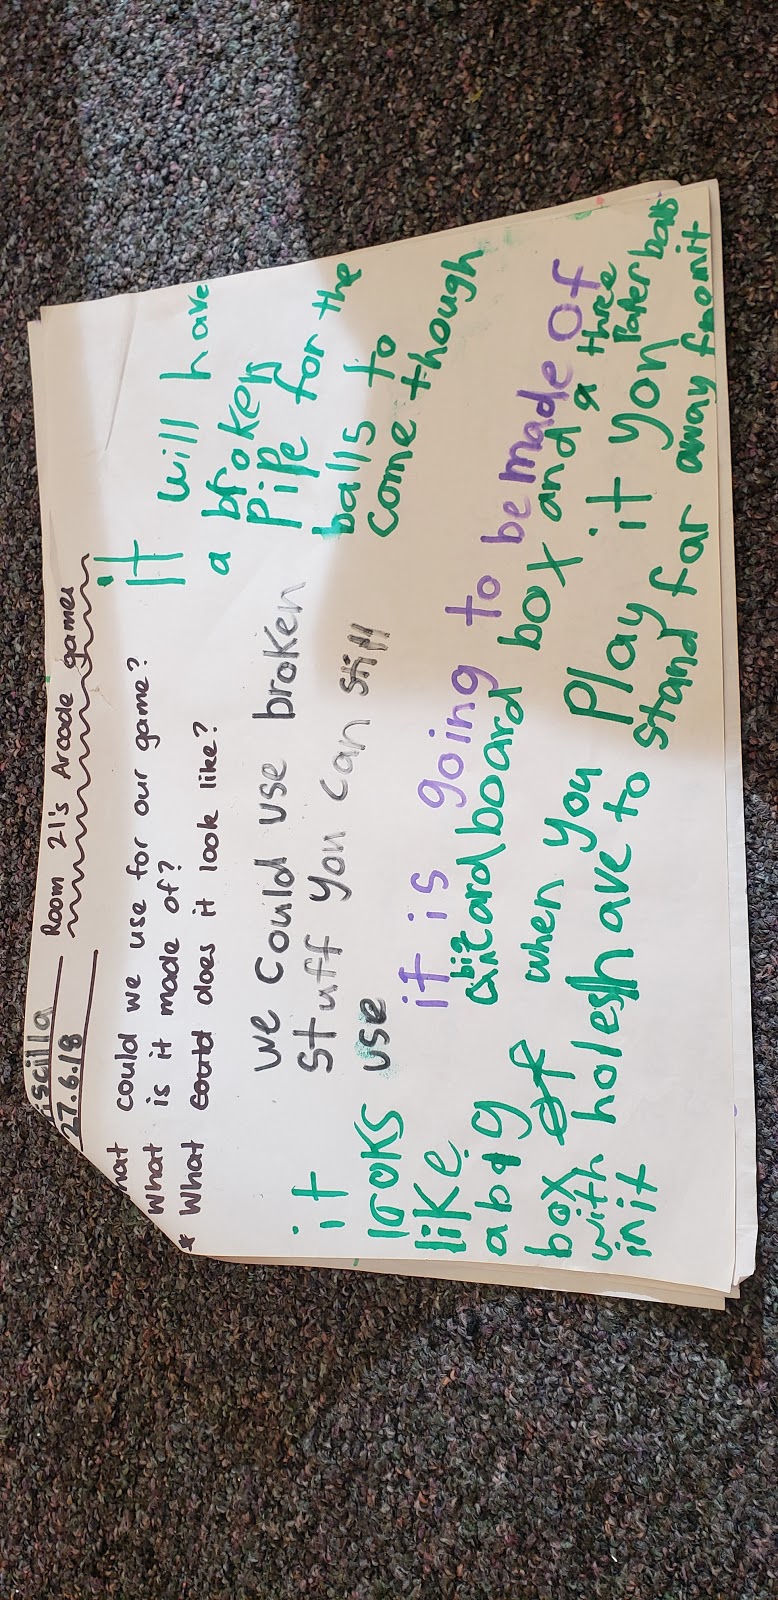 iscilla
27.6.18
Room 21's Arcade games
hat could we use for our game?
What is it made of?
* What could does it look like?
it will have
a broken
pipe for the
balls to
come though
we could use broken
stuff you can still
use
it is going to be made of
big
cardboard box and a three
Paper balls
it
looks
like
a big
box of
with holes
in it
when you Play it you
have to stand far away from it